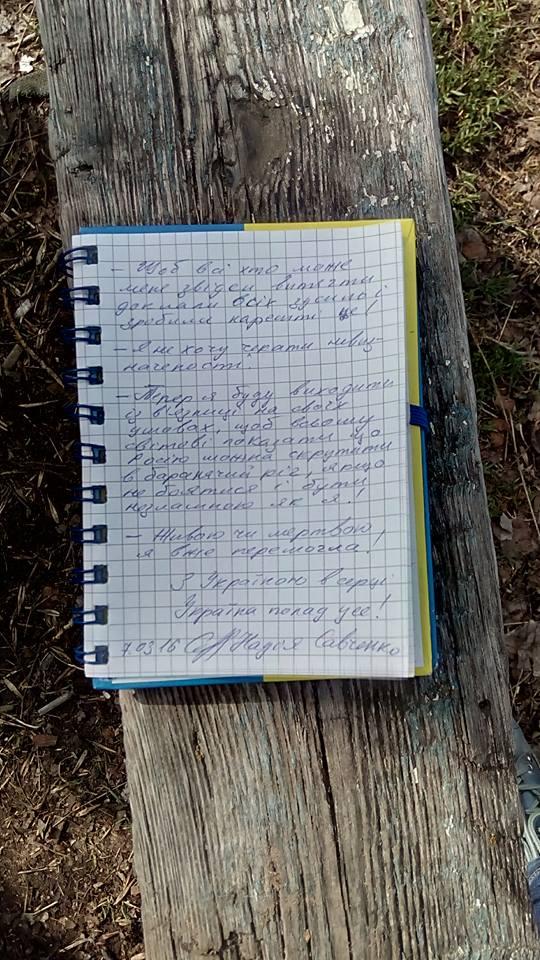 - Щоб всі хто може
мене звідси витягти
доклали всіх зусиль і
зробили нарешті це!
- Я не хочу чекати невиз-
наченості!
- Тепер я буду виходити
із в'язниці на своїх
умовах, щоб всьому
світові показати що
Росію можна скрутити
в баранячий ріг, якщо
не боятися і бути
незламною як я!
- Живою чи мертвою,
я вже перемогла!
З Україною в серці
Україна понад усе!
7.03.16 Надія Савченко